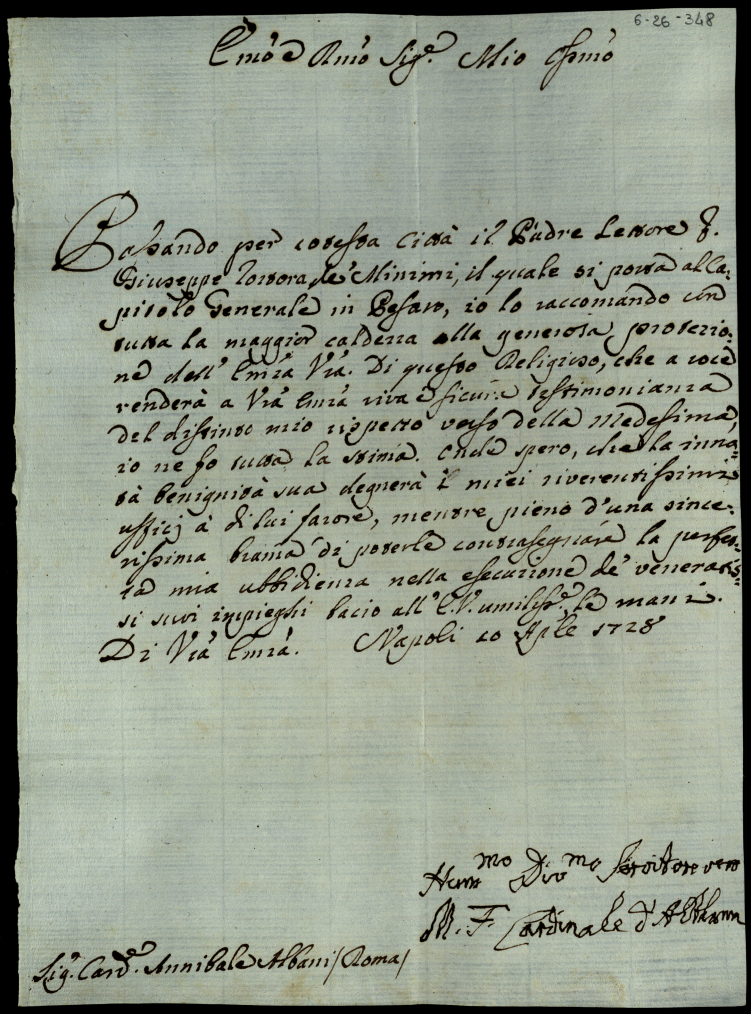 6-26-348
Emo e Rmo Sig.e Mio Ossmo
Passando per cotesta Città il Padre Lettore F.
Giuseppe Tortora de' Minimi, il quale si porta al Ca-
pitolo Generale in Pesaro, io lo raccomando con
tutta la maggior caldezza alla generosa protezio-
ne dell' Emza Vra. Di questo Religioso, che a voce
renderà a Vra Emza viva e sicura testimonianza
del distinto mio rispetto verso della Medesima,
io ne fo tutta la stima. Onde spero, che la inna-
ta benignità sua degnerà i miei riverentissimi
ufficj à di lui favore, mentre pieno d'una since-
rissima brama di poterle contrasegnare la perfet-
ta mia ubbidienza nella esecuzione de' veneratis-
si suoi impieghi bacio all' E.V. umiliss.e le mani.
Di Vra Emza. Napoli 10 Aple 1728
Hum mo Divmo Servitore vero
M. F. Cardinale d'Althann
Sig.r Card.e Annibale Albani /Roma/